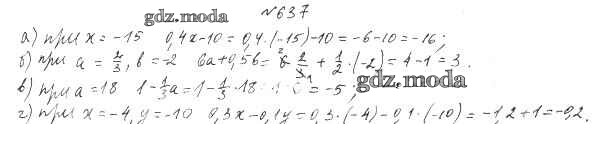 gdz.moda №637
а) при x = -15 0,4x-10 = 0,4·(-15)-10 = -6-10 = -16;
б) при a = 2/3, b = -2 6a+0,5b = 6·2/3 + 1/2·(-2) = 4-1 = 3.
в) при a = 18 1-1/3a = 1-1/3·18 = -5; gdz.moda
г) при x = -4, y = -10 0,3x-0,1y = 0,3·(-4)-0,1·(-10) = -1,2+1 = -0,2.